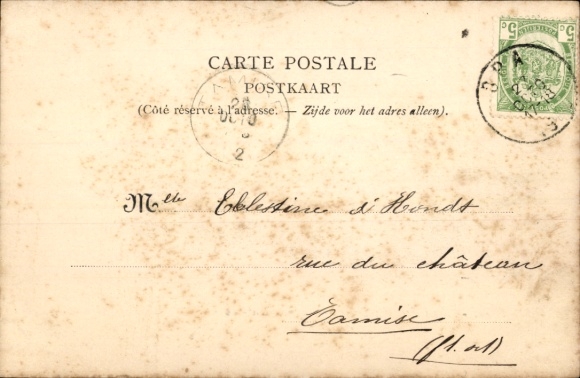 CARTE POSTALE
POSTKAART
(Côté réservé à l'adresse. — Zijde voor het adres alleen).
Mlle Célestine d'Hondt
rue du château
Tamise
(fl. or)
5c 5c